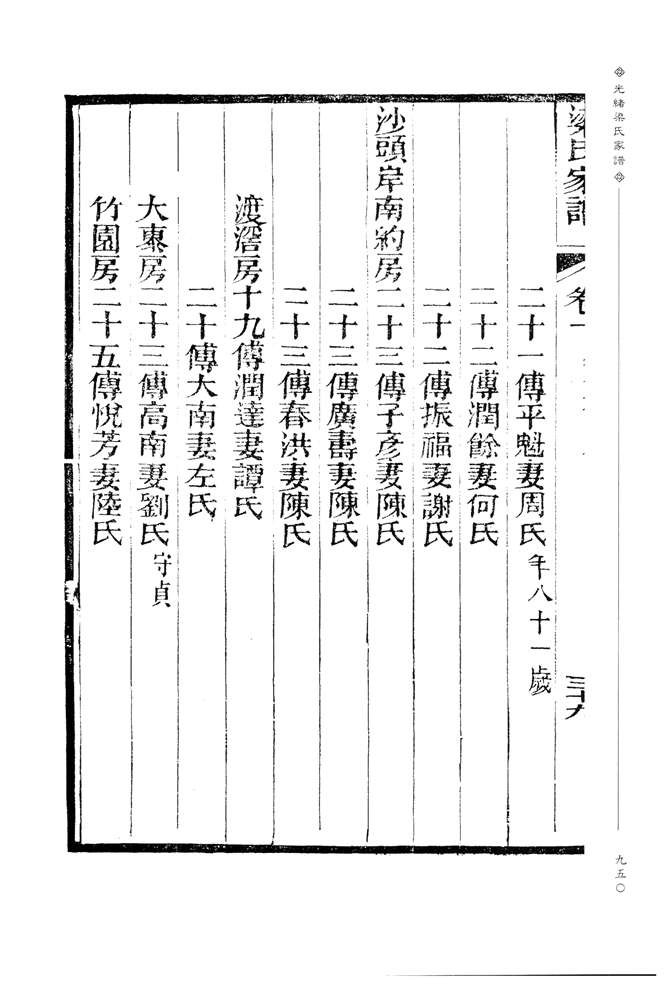 光緒梁氏家譜
九五〇
梁氏家譜 卷一 三十九
二十一傳平魁妻周氏年八十一歲
二十二傳潤餘妻何氏
二十二傳振福妻謝氏
沙頭岸南約房二十三傳子彥妻陳氏
二十三傳廣壽妻陳氏
二十三傳春洪妻陳氏
渡滘房十九傳潤達妻譚氏
二十傳大南妻左氏
大東房二十三傳高南妻劉氏守貞
竹園房二十五傳悅芳妻陸氏